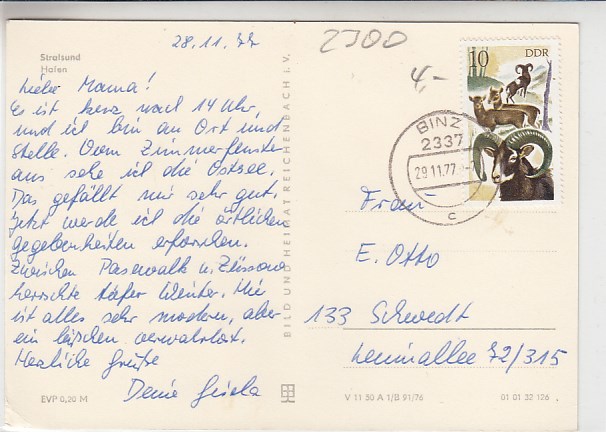 28.11.77
2300
4,-
Stralsund
Hafen
Liebe Mama!
Es ist kurz nach 14 Uhr,
und ich bin an Ort und
Stelle. Vom Zimmerfenster
aus sehe ich die Ostsee.
Das gefällt mir sehr gut.
Jetzt werde ich die örtlichen
Gegebenheiten erforschen.
Zwischen Pasewalk u. Züssow
herrschte tiefer Winter. Hier
ist alles sehr modern, aber
ein bißchen verwahrlost.
Herzliche Grüße
Deine Gisela
EVP 0,20 M
BILD UND HEIMAT REICHENBACH I. V.
10 DDR
BINZ
2337
29.11.77
c
Frau
E. Otto
133 Schwedt
Leninallee 72/315
V 11 50 A 1/B 91/76
01 01 32 126